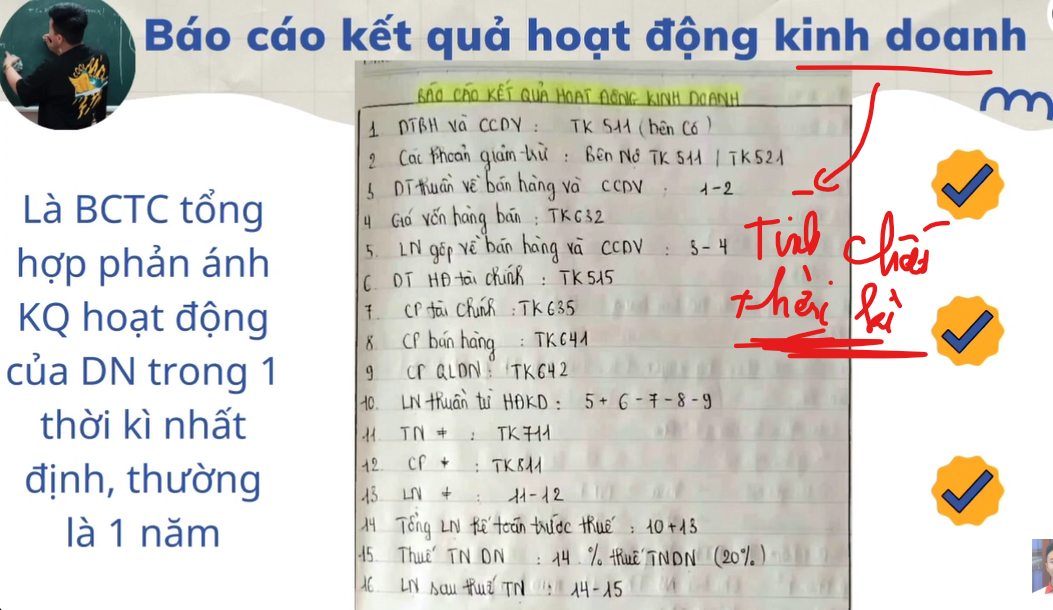 Báo cáo kết quả hoạt động kinh doanh
Là BCTC tổng
hợp phản ánh
KQ hoạt động
của DN trong 1
thời kì nhất
định, thường
là 1 năm
BÁO CÁO KẾT QUẢ HOẠT ĐỘNG KINH DOANH
1 DTBH và CCDV : TK 511 (bên Có)
2 Các khoản giảm trừ : Bên Nợ TK 511 | TK521
3 DT thuần về bán hàng và CCDV : 1-2
4 Giá vốn hàng bán : TK632
5. LN gộp về bán hàng và CCDV : 3-4
6. DT HĐ tài chính : TK515
7. CP tài chính : TK635
8. CP bán hàng : TK641
9 CP QLDN : TK642
10. LN thuần từ HĐKD : 5+6-7-8-9
11. TN ≠ : TK711
12. CP ≠ : TK811
13 LN ≠ : 11-12
14 Tổng LN kế toán trước thuế : 10+13
15. Thuế TN DN : 14.% thuế TNDN (20%)
16. LN sau thuế TN : 14-15
Tính chất
thời kì